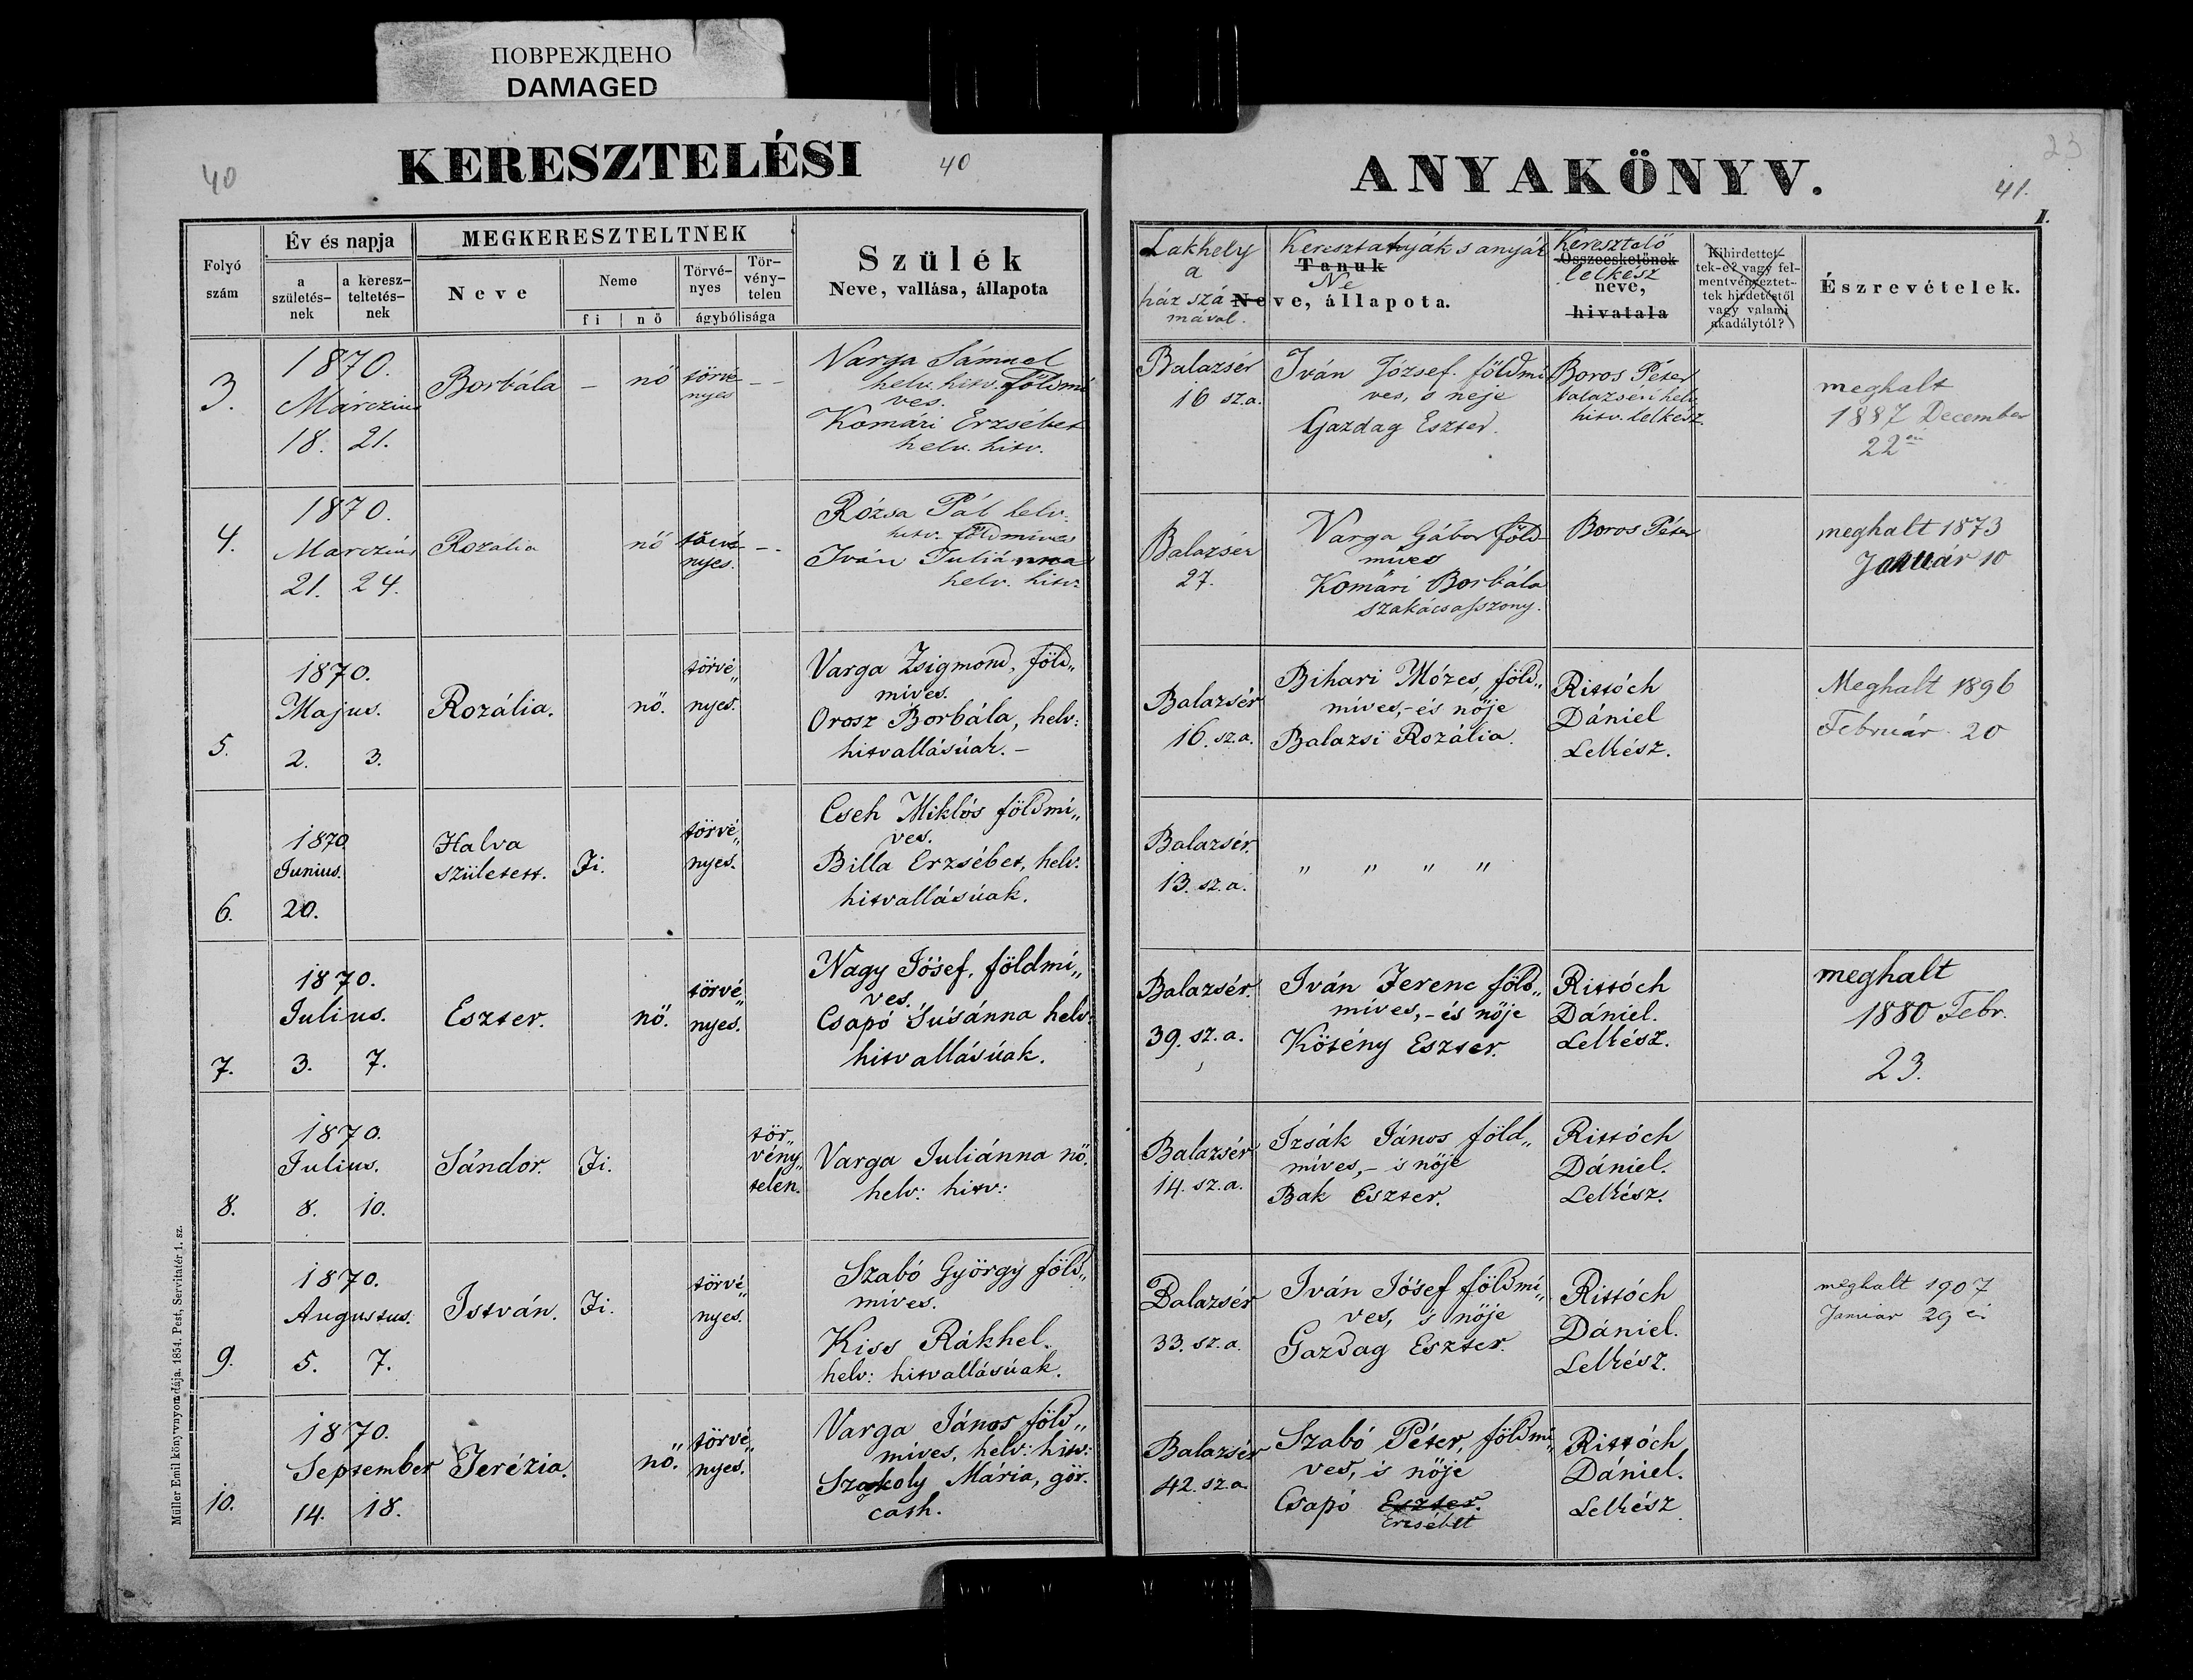 ПОВРЕЖДЕНО
DAMAGED
40
KERESZTELÉSI
40
ANYAKÖNYV.
23
41.
I.
Folyó
szám
Év és napja
a
születés-
nek
a keresz-
teltetés-
nek
MEGKERESZTELTNEK
Neve
Neme
fi
nö
Törvé-
nyes
Tör-
vény-
telen
ágybólisága
Szülék
Neve, vallása, állapota
Lakhely
a
ház szá
mával.
Keresztatyák s anyák
Tanuk
Ne
Neve, állapota.
Keresztelő
Összeesketőnek
lelkész
neve,
hivatala
Kihirdettet-
tek-e? vagy fel-
mentvényeztet-
tek hirdetéstől
vagy valami
akadálytól?
Észrevételek.
3.
1870.
Márczius
18. 21.
Borbála
–
nö
törvé
nyes
– –
Varga Sámuel
helv. hitv. földmi
ves.
Komári Erzsébet
helv. hitv.
Balazsér
16 sz.a.
Iván József. földmi
ves, s neje
Gazdag Eszter.
Boros Péter
balazséri helv.
hitv. lelkész.
meghalt
1887 December
22én
4.
1870.
Marczius
21. 24.
Rozália
nö
törvé
nyes.
– –
Rózsa Pál helv.
hitv. földmíves
Iván Juliánna
helv. hitv.
Balazsér
27.
Varga Gábor föld-
míves
Komári Borbála
szakácsasszony.
Boros Péter
meghalt 1873
Január 10
5.
1870.
Majus.
2. 3.
Rozália.
nö.
törvé„
nyes.
Varga Zsigmond, föld„
míves.
Orosz Borbála, helv:
hitvallásúak. –
Balazsér
16. sz.a.
Bihari Mózes, föld„
míves,- és nöje
Balazsi Rozália.
Rittóch
Dániel
Lelkész.
Meghalt 1896
Február 20
6.
1870
Junius.
20.
Halva
született.
Fi.
törvé„
nyes.
Cseh Miklós földmi„
ves.
Billa Erzsébet, helv:
hitvallásúak.
Balazsér.
13. sz.a.
„ „ „ „
7.
1870.
Julius.
3. 7.
Eszter.
nö.
törvé„
nyes.
Nagy Jósef, földmi„
ves.
Csapó Susánna helv:
hitvallásúak.
Balazsér.
39. sz.a.
Iván Ferenc föld„
míves,- és nöje
Kötény Eszter.
Rittóch
Dániel.
Lelkész.
meghalt
1880 Febr.
23.
8.
1870.
Julius.
8. 10.
Sándor.
Fi.
tör„
vény„
telen.
Varga Juliánna nö.
helv: hitv:
Balazsér
14. sz.a.
Izsák János föld„
míves,- is nöje
Bak Eszter.
Rittóch
Dániel.
Lelkész.
9.
1870.
Augustus.
5. 7.
István.
Fi.
törvé„
nyes.
Szabó György föld„
míves.
Kiss Rákhel.
helv: hitvallásúak.
Balazsér
33. sz.a.
Iván Jósef földmi„
ves, is nöje
Gazdag Eszter.
Rittóch
Dániel.
Lelkész.
meghalt 1907
Január 29 én
10.
1870.
September
14. 18.
Terézia.
nö.
törvé„
nyes.
Varga János föld„
míves, helv: hitv:
Szakoly Mária, gör.
cath.
Balazsér
42. sz.a.
Szabó Péter, földmi„
ves, is nöje
Csapó Eszter.
Erzsébet
Rittóch
Dániel.
Lelkész
Müller Emil könyvnyomdája. 1854. Pest, Servitatér 1. sz.